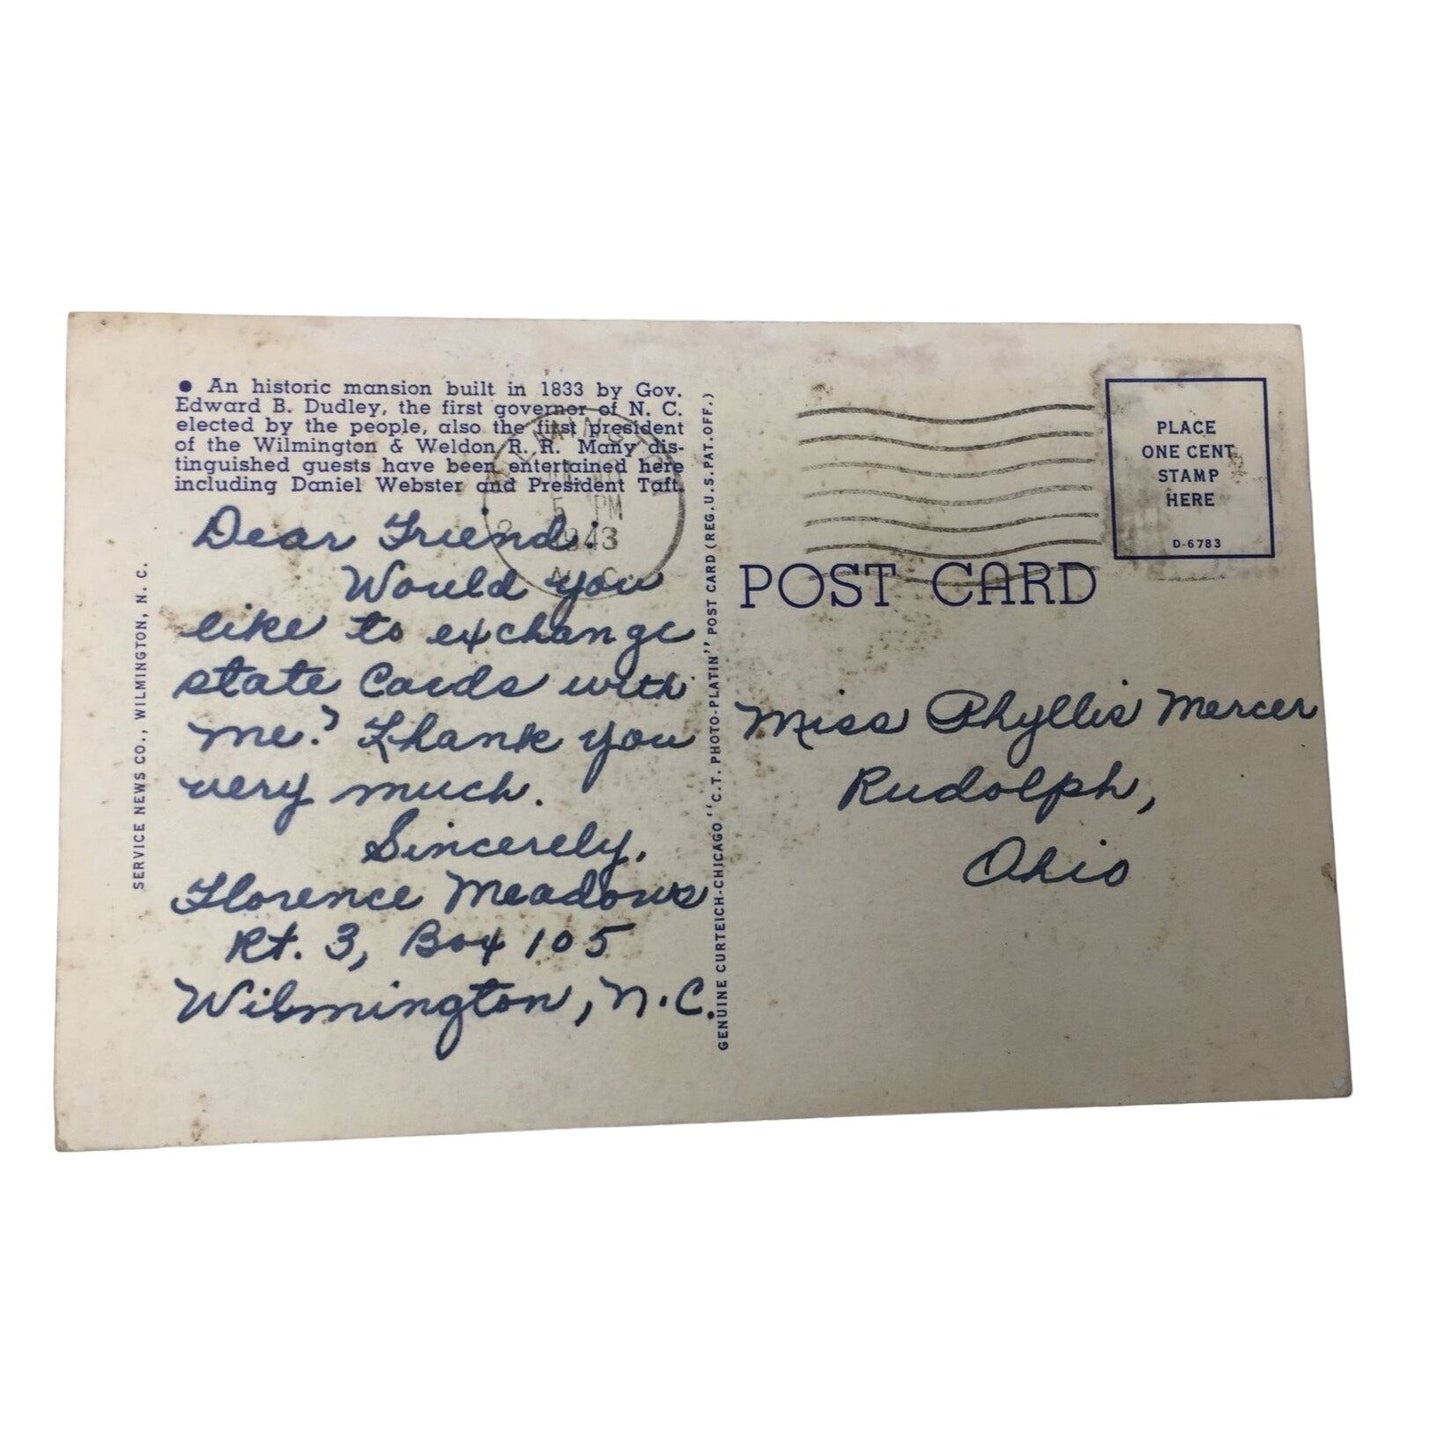 ● An historic mansion built in 1833 by Gov.
Edward B. Dudley, the first governor of N. C.
elected by the people, also the first president
of the Wilmington & Weldon R. R. Many dis-
tinguished guests have been entertained here
including Daniel Webster and President Taft.
Dear Friend:
Would you
like to exchange
state Cards with
me? Thank you
very much.
Sincerely,
Florence Meadows
Rt. 3, Box 105
Wilmington, N.C.
SERVICE NEWS CO., WILMINGTON, N. C.
5 PM
1943
N.C.
GENUINE CURTEICH-CHICAGO "C.T. PHOTO-PLATIN" POST CARD (REG. U.S. PAT. OFF.)
PLACE
ONE CENT
STAMP
HERE
D-6783
POST CARD
Miss Phyllis Mercer
Rudolph,
Ohio